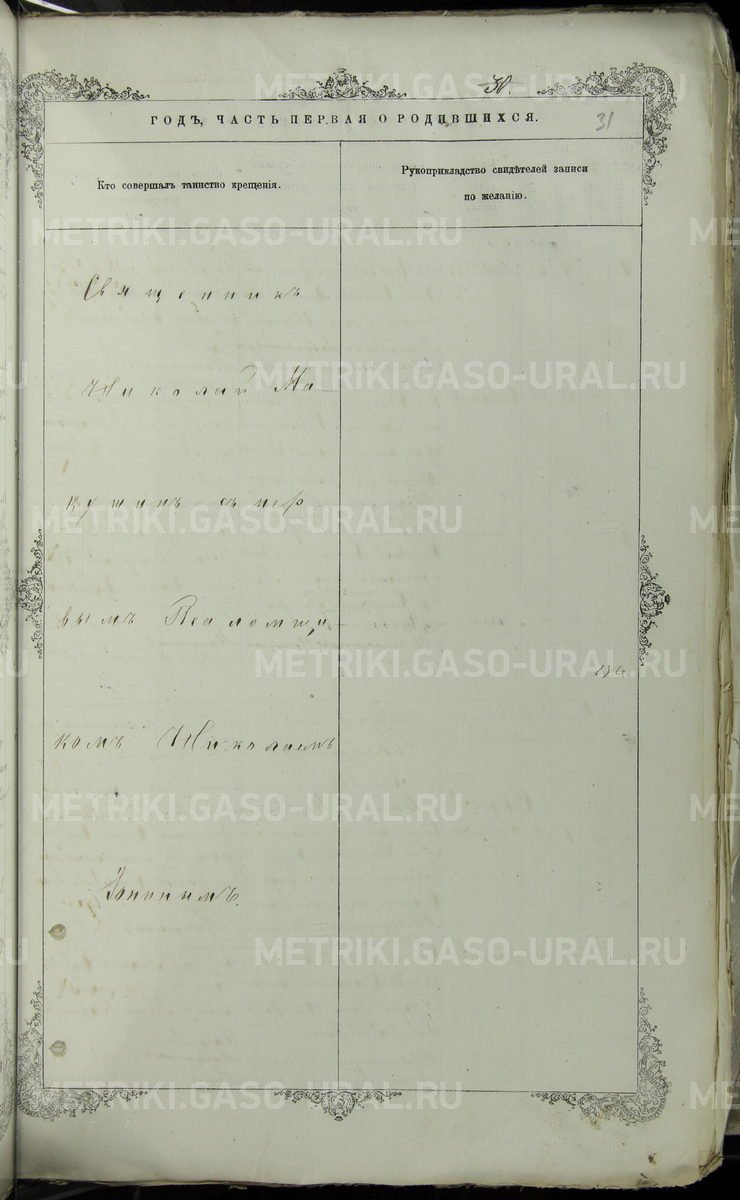 38.
31
ГОДЪ, ЧАСТЬ ПЕРВАЯ О РОДИВШИХСЯ.
Кто совершалъ таинство крещенія.
Рукоприкладство свидѣтелей записи
по желанію.
Священникъ
Николай Ма-
кушинъ съ пер
вымъ Псаломщи-
комъ Николаемъ
METRIKI.GASO-URAL.RU